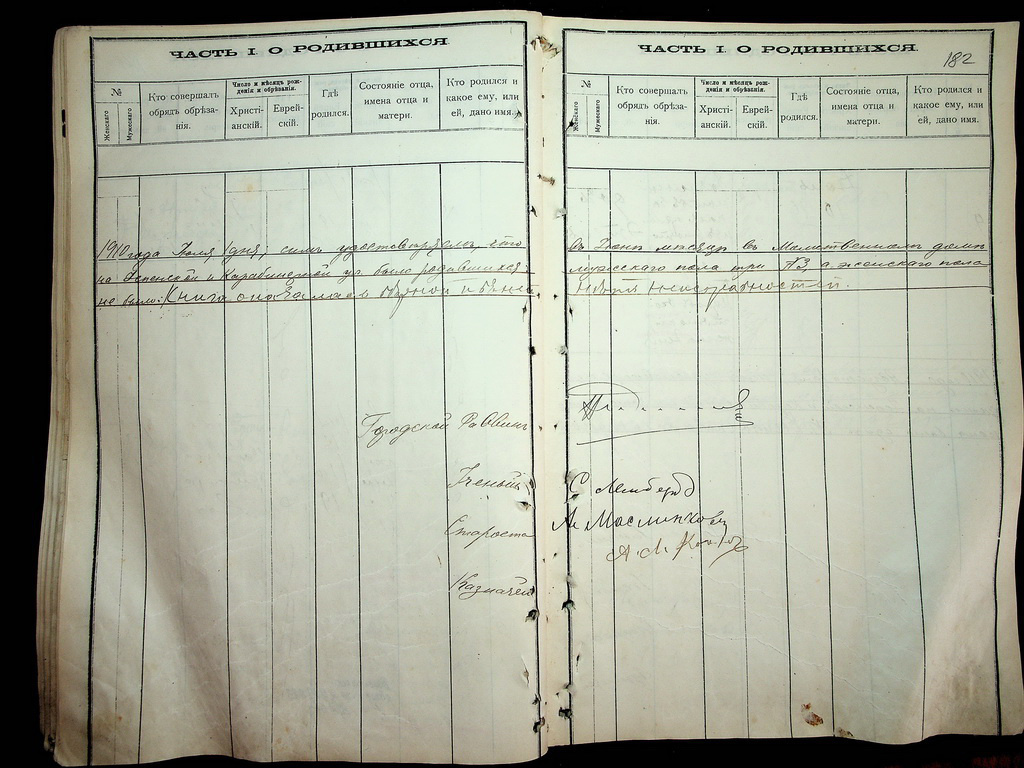 ЧАСТЬ I. О РОДИВШИХСЯ
№
Женскаго
Мужескаго
Кто совершалъ обрядъ обрѣзанія.
Число и мѣсяцъ рожденія и обрѣзанія.
Христіанскій.
Еврейскій.
Гдѣ родился.
Состояніе отца, имена отца и матери.
Кто родился и какое ему, или ей, дано имя.
ЧАСТЬ I. О РОДИВШИХСЯ
182
№
Женскаго
Мужескаго
Кто совершалъ обрядъ обрѣзанія.
Число и мѣсяцъ рожденія и обрѣзанія.
Христіанскій.
Еврейскій.
Гдѣ родился.
Состояніе отца, имена отца и матери.
Кто родился и какое ему, или ей, дано имя.
1910 года Іюля 1 дня; симъ удостовѣряемъ, что въ Іюнѣ мѣсяцѣ въ Молитвенномъ домѣ
на Успенской и ул. было родившихся: мужескаго пола три №3, а женскаго пола
не было: Книга оказалась вѣрной и
Городской Раввинъ
Ученый С. Лемберг
Староста А. Масленковъ
А. М.
Казначей